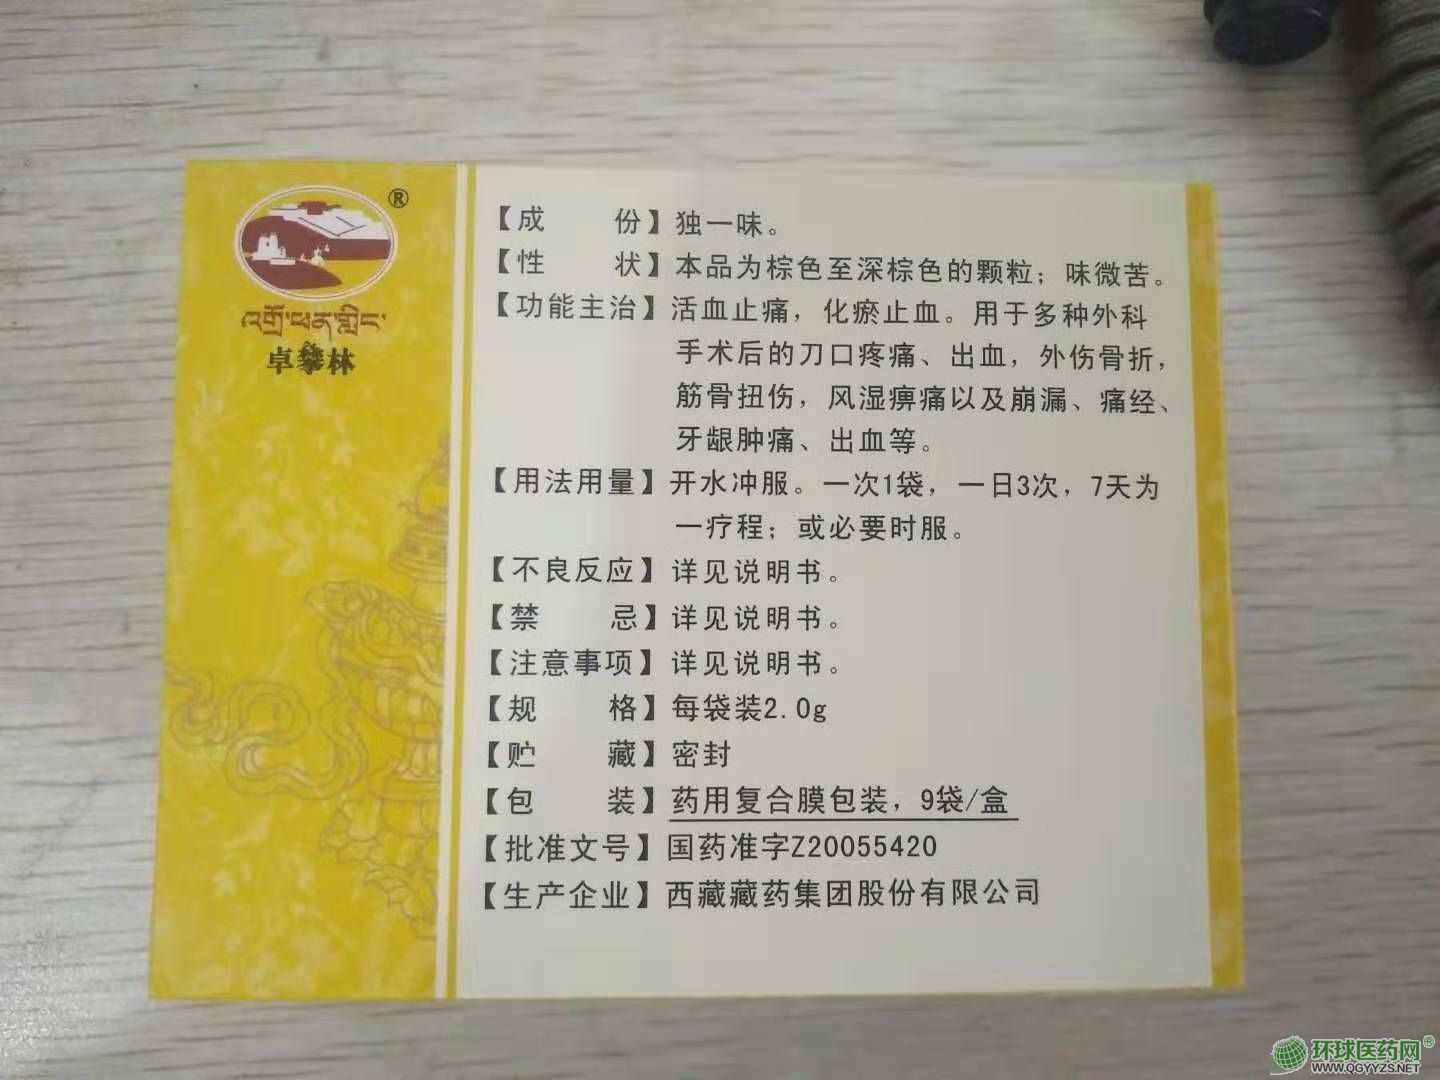 ®
འགྲོ་ཕན་གླིང་
卓攀林
【成　　份】独一味。
【性　　状】本品为棕色至深棕色的颗粒；味微苦。
【功能主治】活血止痛，化瘀止血。用于多种外科
手术后的刀口疼痛、出血，外伤骨折，
筋骨扭伤，风湿痹痛以及崩漏、痛经、
牙龈肿痛、出血等。
【用法用量】开水冲服。一次1袋，一日3次，7天为
一疗程；或必要时服。
【不良反应】详见说明书。
【禁　　忌】详见说明书。
【注意事项】详见说明书。
【规　　格】每袋装2.0g
【贮　　藏】密封
【包　　装】药用复合膜包装，9袋/盒
【批准文号】国药准字Z20055420
【生产企业】西藏藏药集团股份有限公司
环球医药网®
WWW.QGYYZS.NET